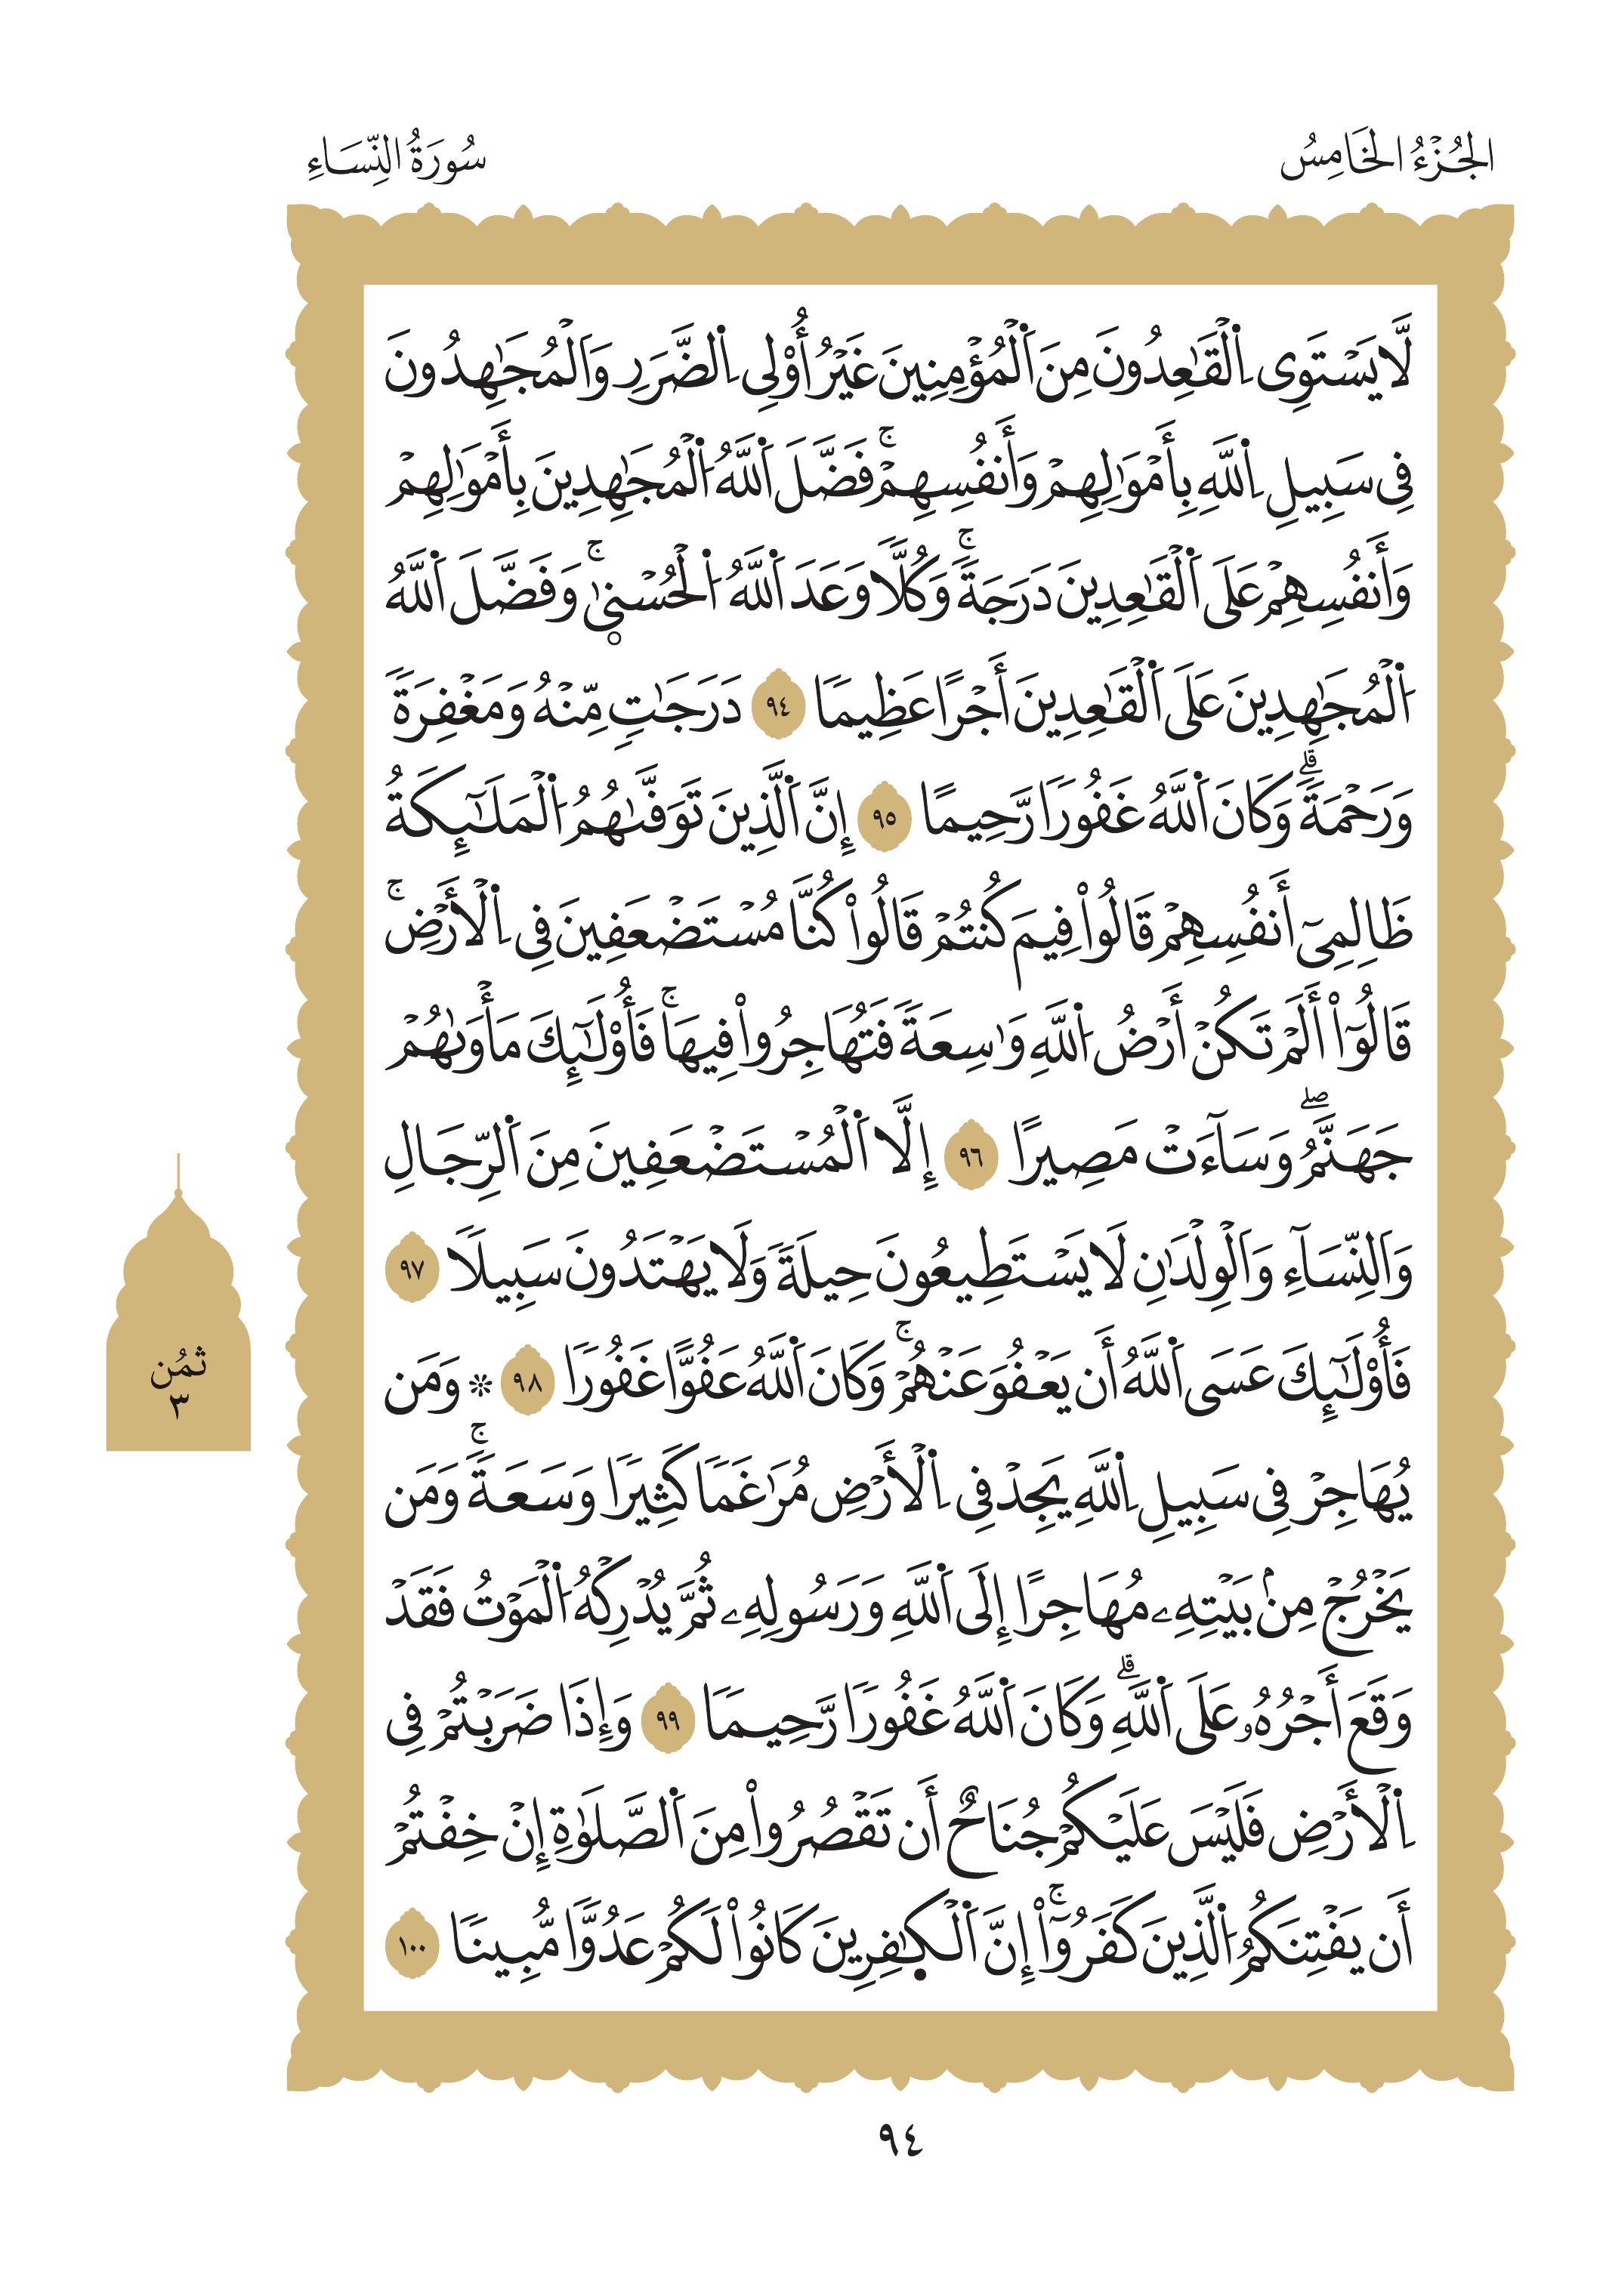 الجُزْءُ الخَامِسُ
سُورَةُ النِّسَاءِ
لَّا يَسْتَوِى اِ۬لْقَٰعِدُونَ مِنَ اَ۬لْمُؤْمِنِينَ غَيْرُ أُوْلِى اِ۬لضَّرَرِ وَالْمُجَٰهِدُونَ
فِى سَبِيلِ اِ۬للَّهِ بِأَمْوَٰلِهِمْ وَأَنفُسِهِمْۚ فَضَّلَ اَ۬للَّهُ اُ۬لْمُجَٰهِدِينَ بِأَمْوَٰلِهِمْ
وَأَنفُسِهِمْ عَلَى اَ۬لْقَٰعِدِينَ دَرَجَةٗۚ وَكُلّٗا وَعَدَ اَ۬للَّهُ اُ۬لْحُسْنۭيٰۚ وَفَضَّلَ اَ۬للَّهُ
اُ۬لْمُجَٰهِدِينَ عَلَى اَ۬لْقَٰعِدِينَ أَجْرًا عَظِيمٗا ٩٤ دَرَجَٰتٖ مِّنْهُ وَمَغْفِرَةٗ
وَرَحْمَةٗۗ وَكَانَ اَ۬للَّهُ غَفُورٗا رَّحِيمًا ٩٥ إِنَّ اَ۬لَّذِينَ تَوَفَّىٰهُمُ اُ۬لْمَلَٰٓئِكَةُ
ظَالِمِىٓ أَنفُسِهِمْ قَالُواْ فِيمَ كُنتُمْ قَالُواْ كُنَّا مُسْتَضْعَفِينَ فِى اِ۬لْأَرْضِۚ
قَالُوٓاْ أَلَمْ تَكُنْ أَرْضُ اُ۬للَّهِ وَٰسِعَةٗ فَتُهَاجِرُواْ فِيهَاۚ فَأُوْلَٰٓئِكَ مَأْوَىٰهُمْ
جَهَنَّمُۖ وَسَآءَتْ مَصِيرًا ٩٦ إِلَّا اَ۬لْمُسْتَضْعَفِينَ مِنَ اَ۬لرِّجَالِ
وَالنِّسَآءِ وَالْوِلْدَٰنِ لَا يَسْتَطِيعُونَ حِيلَةٗ وَلَا يَهْتَدُونَ سَبِيلٗا ٩٧
فَأُوْلَٰٓئِكَ عَسَى اَ۬للَّهُ أَن يَعْفُوَ عَنْهُمْۚ وَكَانَ اَ۬للَّهُ عَفُوًّا غَفُورٗا ٩٨ ۞ وَمَن
يُهَاجِرْ فِى سَبِيلِ اِ۬للَّهِ يَجِدْ فِى اِ۬لْأَرْضِ مُرَٰغَمٗا كَثِيرٗا وَسَعَةٗۚ وَمَن
يَخْرُجْ مِنۢ بَيْتِهِۦ مُهَاجِرًا إِلَى اَ۬للَّهِ وَرَسُولِهِۦ ثُمَّ يُدْرِكْهُ اُ۬لْمَوْتُ فَقَدْ
وَقَعَ أَجْرُهُۥ عَلَى اَ۬للَّهِۗ وَكَانَ اَ۬للَّهُ غَفُورٗا رَّحِيمٗا ٩٩ وَإِذَا ضَرَبْتُمْ فِى
اِ۬لْأَرْضِ فَلَيْسَ عَلَيْكُمْ جُنَاحٌ أَن تَقْصُرُواْ مِنَ اَ۬لصَّلَوٰةِ إِنْ خِفْتُمْ
أَن يَفْتِنَكُمُ اُ۬لَّذِينَ كَفَرُوٓاْۚ إِنَّ اَ۬لْكٰ۪فِرِينَ كَانُواْ لَكُمْ عَدُوّٗا مُّبِينٗا ١٠٠
ثمُن
٣
٩٤